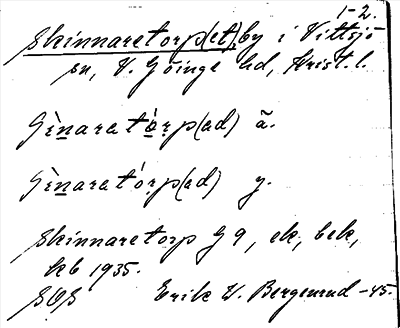 1-2.
Skinnaretorp(et), by i Vittsjö
sn, V. Göinge hd, Krist. l.
Sìnaretórp(ad) ã.
Sìnaretórp(ad) y.
Skinnaretorp G 9, ek, bek,
kb 1935.
SOS Erik W. Bergenrud -45.